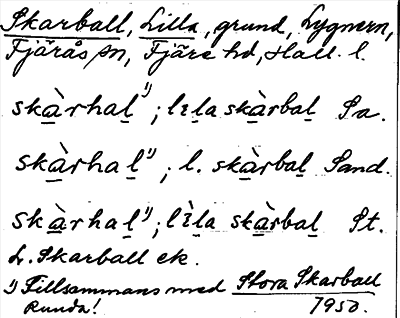 Skarball, Lilla, grund, Lygnern,
Fjärås sn, Fjäre hd, Hall. l.
skàrhal¹⁾; lɩla skàrbal Sa.
skàrhal¹⁾; l. skàrbal Sand.
skàrhal¹⁾; lɩ̀la skàrbal St.
L. Skarball ek.
¹⁾ Tillsammans med Stora Skarball
Runda! 1950.